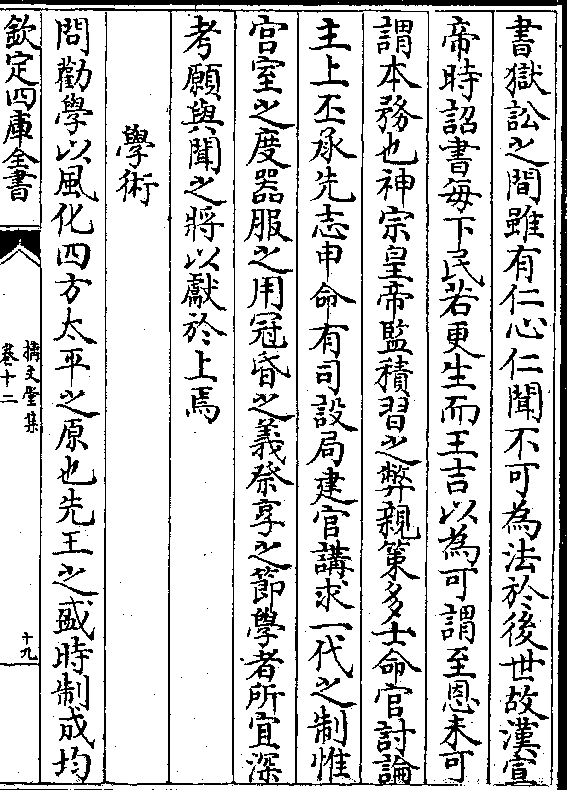 書獄訟之間雖有仁心仁聞不可為法於後世故漢宣
帝時詔書每下民若更生而王吉以為可謂至恩未可
謂本務也神宗皇帝監積習之弊親策多士命官討論
主上丕承先志申命有司設局建官講求一代之制惟
宫室之度器服之用冠昏之義祭享之節學者所宜深
考願與聞之將以獻於上焉
學術
問勸學以風化四方太平之原也先王之盛時制成均
欽定四庫全書
摛文堂集
卷十二
十九